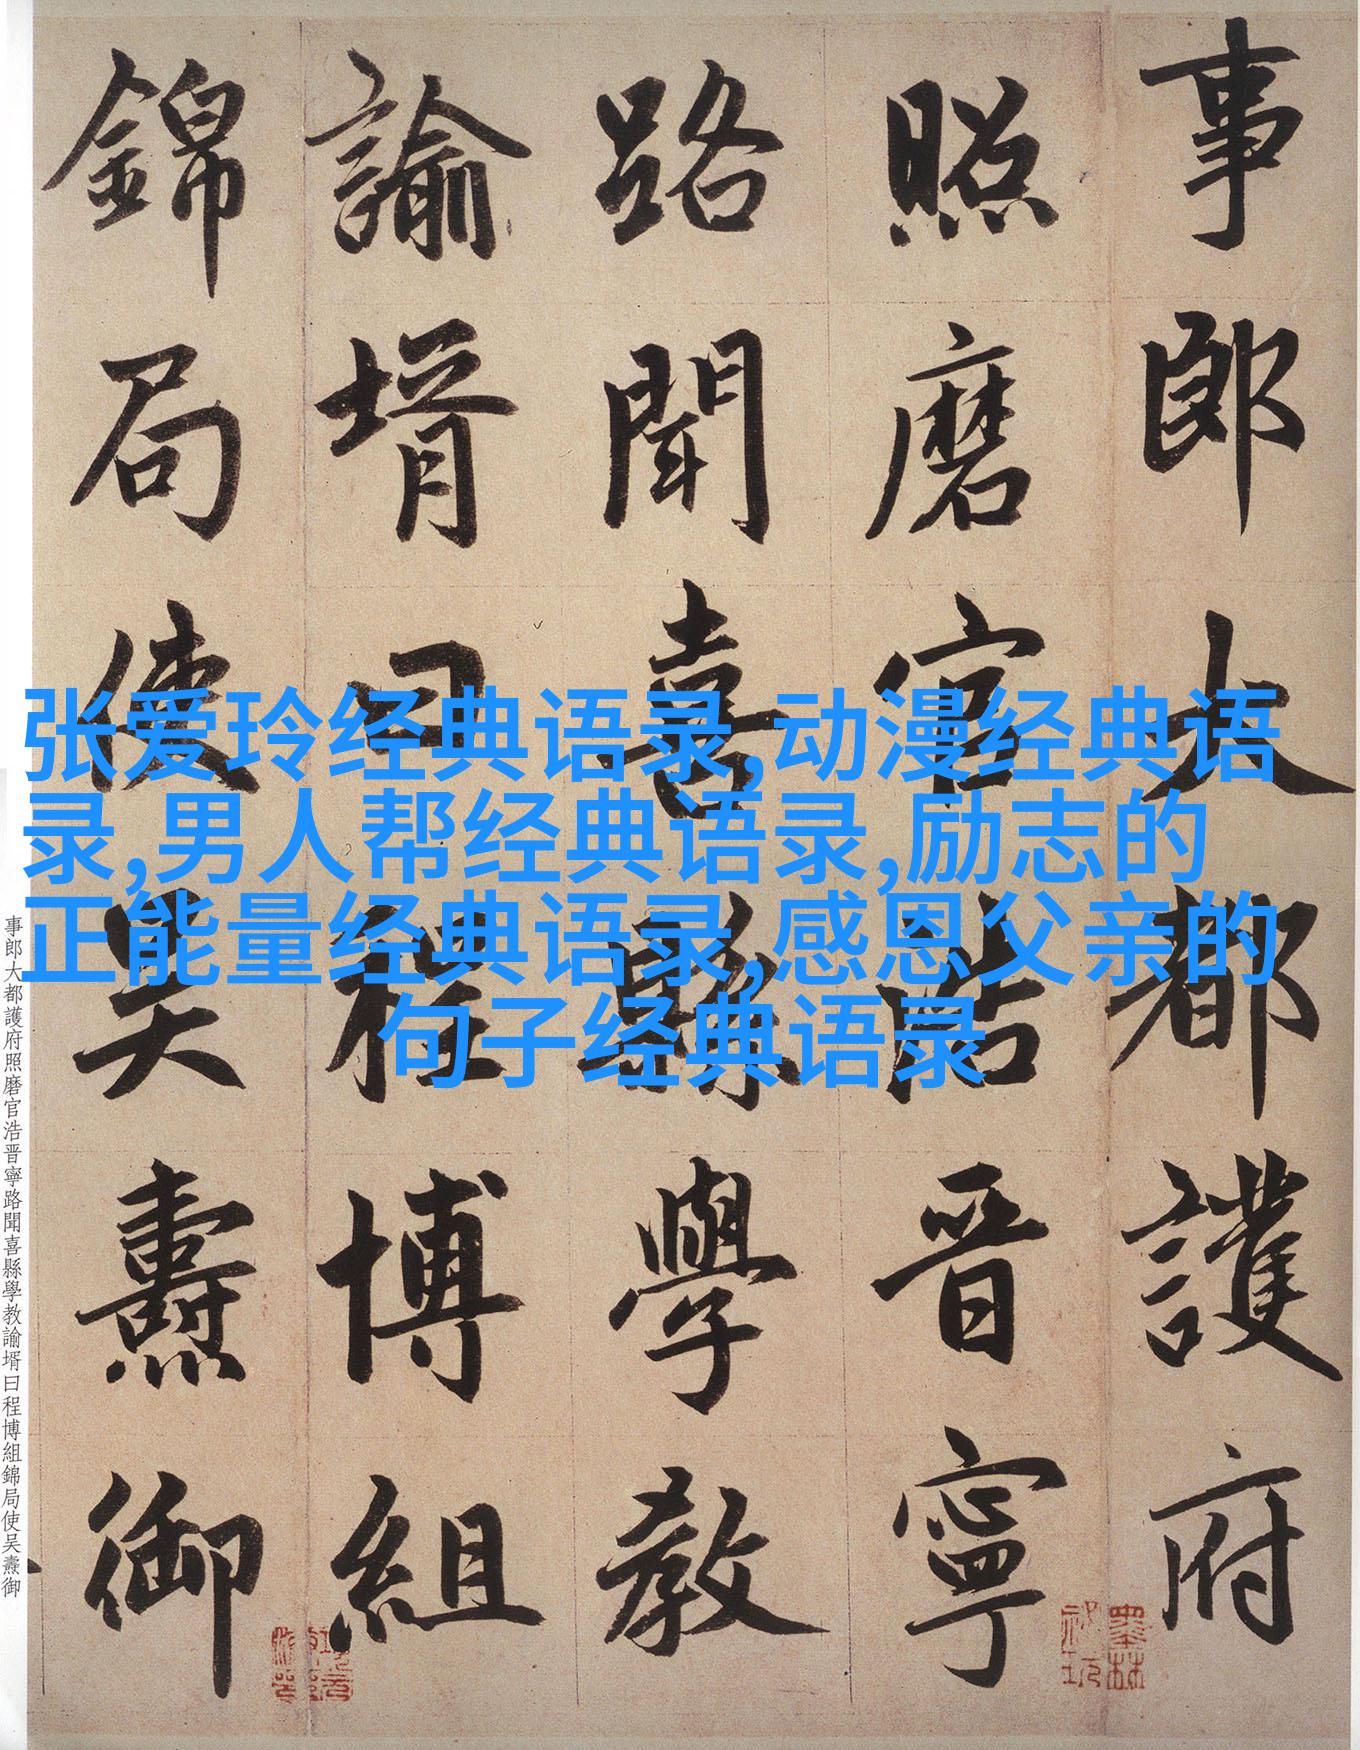 事郎大都護府
照磨官浩晋寧
路聞喜縣學教
諭壻曰程博組
錦局使吴燾御
张爱玲经典语录,动漫经典语
录,男人帮经典语录,励志的
正能量经典语录,感恩父亲的
句子经典语录
事郎大都護府照磨官浩晋寧路聞喜縣學教諭壻曰程博組錦局使吴燾御